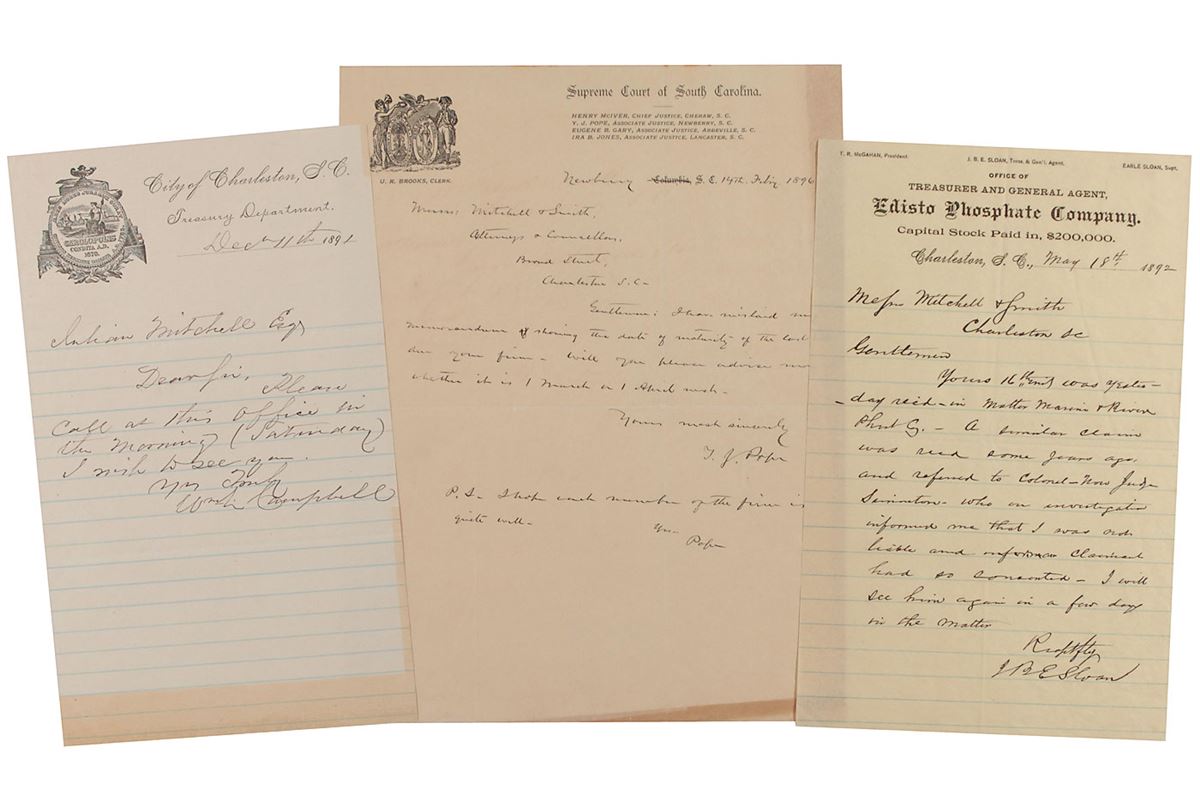 City of Charleston, S.C.
Treasury Department.
Dec 11th 1891
CAROLOPOLIS
CONDITA A.D.
1670.
Julian Mitchell Esq
Dear Sir, Please
Call at this Office in
the Morning (Saturday)
I wish to see you.
Campbell
Supreme Court of South Carolina.
HENRY McIVER, CHIEF JUSTICE, CHERAW, S. C.
Y. J. POPE, ASSOCIATE JUSTICE, NEWBERRY, S. C.
EUGENE B. GARY, ASSOCIATE JUSTICE, ABBEVILLE, S. C.
IRA B. JONES, ASSOCIATE JUSTICE, LANCASTER, S. C.
U. R. BROOKS, CLERK.
Newberry Columbia, S. C. 14th Feby 1896
Messrs Mitchell & Smith,
Attorneys & Counsellors,
Broad Street,
Charleston S.C.
Gentlemen: I have mislaid
memorandum showing the date of maturity of the
due your firm - Will you please advise
whether it is 1 March or 1 April
Yours most sincerely
Y. J. Pope
P.S. I hope each member of the firm is
quite well-
Pope
T. R. McGAHAN, President.
J. B. E. SLOAN, Treas. & Gen'l. Agent.
EARLE SLOAN, Supt.
OFFICE OF
TREASURER AND GENERAL AGENT,
Edisto Phosphate Company.
Capital Stock Paid in, $200,000.
Charleston, S. C., May 18th 1892
Messrs Mitchell & Smith
Charleston SC
Gentlemen
Yours 16th inst was yester-
-day recd - in Matter Marine & River
Phos Co. - A similar claim
was recd some years ago,
and referred to Colonel - Now Judge
Simonton - who on investigation
informed me that I was not
liable and claimant
had so consented - I will
see him again in a few days
in the matter
Respctfly
J B E Sloan